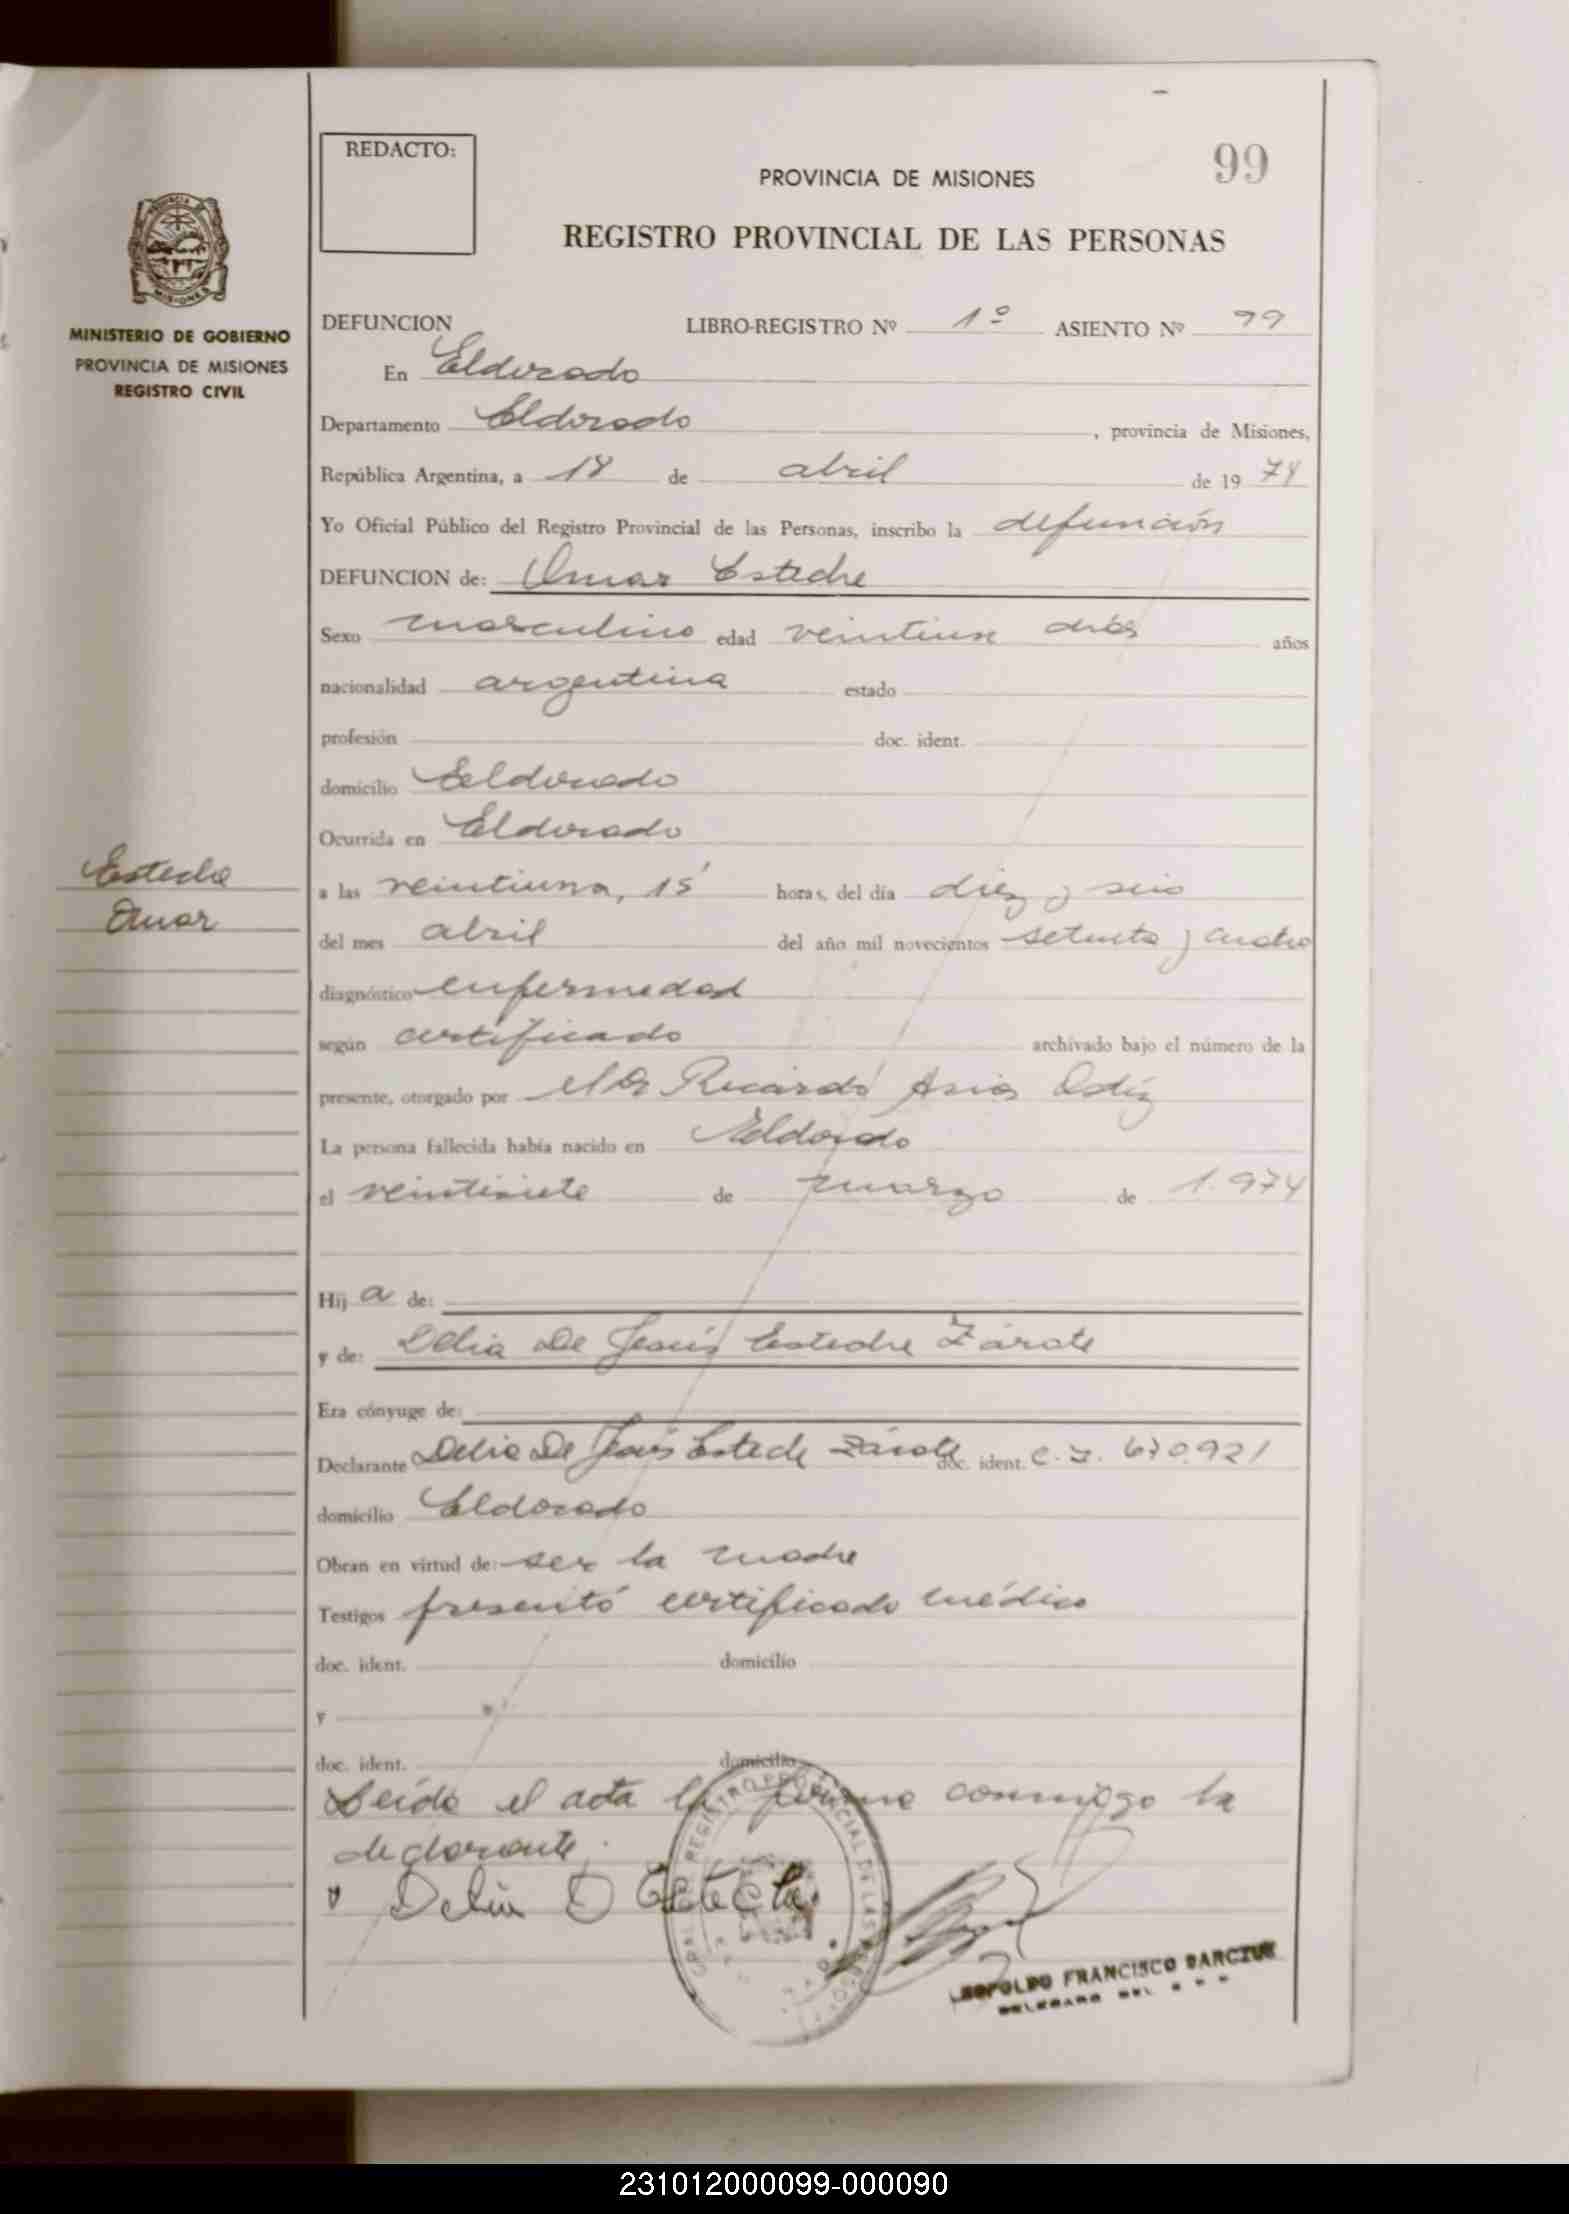 REDACTO:
99
PROVINCIA DE MISIONES
REGISTRO PROVINCIAL DE LAS PERSONAS
MISIONES
MINISTERIO DE GOBIERNO
PROVINCIA DE MISIONES
REGISTRO CIVIL
DEFUNCION LIBRO-REGISTRO Nº 1º ASIENTO Nº 99
En Eldorado
Departamento Eldorado, provincia de Misiones,
República Argentina, a 18 de abril de 1974
Yo Oficial Público del Registro Provincial de las Personas, inscribo la defunción
DEFUNCION de: Omar Esteche
Sexo masculino edad veintiun días años
nacionalidad argentina estado
profesión doc. ident.
domicilio Eldorado
Ocurrida en Eldorado
Esteche
Omar
a las veintiuna, 15 horas, del día diez y seis
del mes abril del año mil novecientos setenta y cuatro
diagnóstico enfermedad
según certificado archivado bajo el número de la
presente, otorgado por el Dr Ricardo
La persona fallecida había nacido en Eldorado
el veintisiete de marzo de 1.974
Hij a de:
y de: Delia De Jesús Esteche Zárate
Era cónyuge de:
Declarante Delia De Jesús Esteche Zárate doc. ident. C. I. 670.921
domicilio Eldorado
Obran en virtud de: ser la madre
Testigos presentó certificado médico
doc. ident. domicilio
y
doc. ident. domicilio
Leída el acta la firma conmigo la
declarante.
Delia D Esteche
REGISTRO PROVINCIAL DE LAS
LEOPOLDO FRANCISCO
231012000099-000090